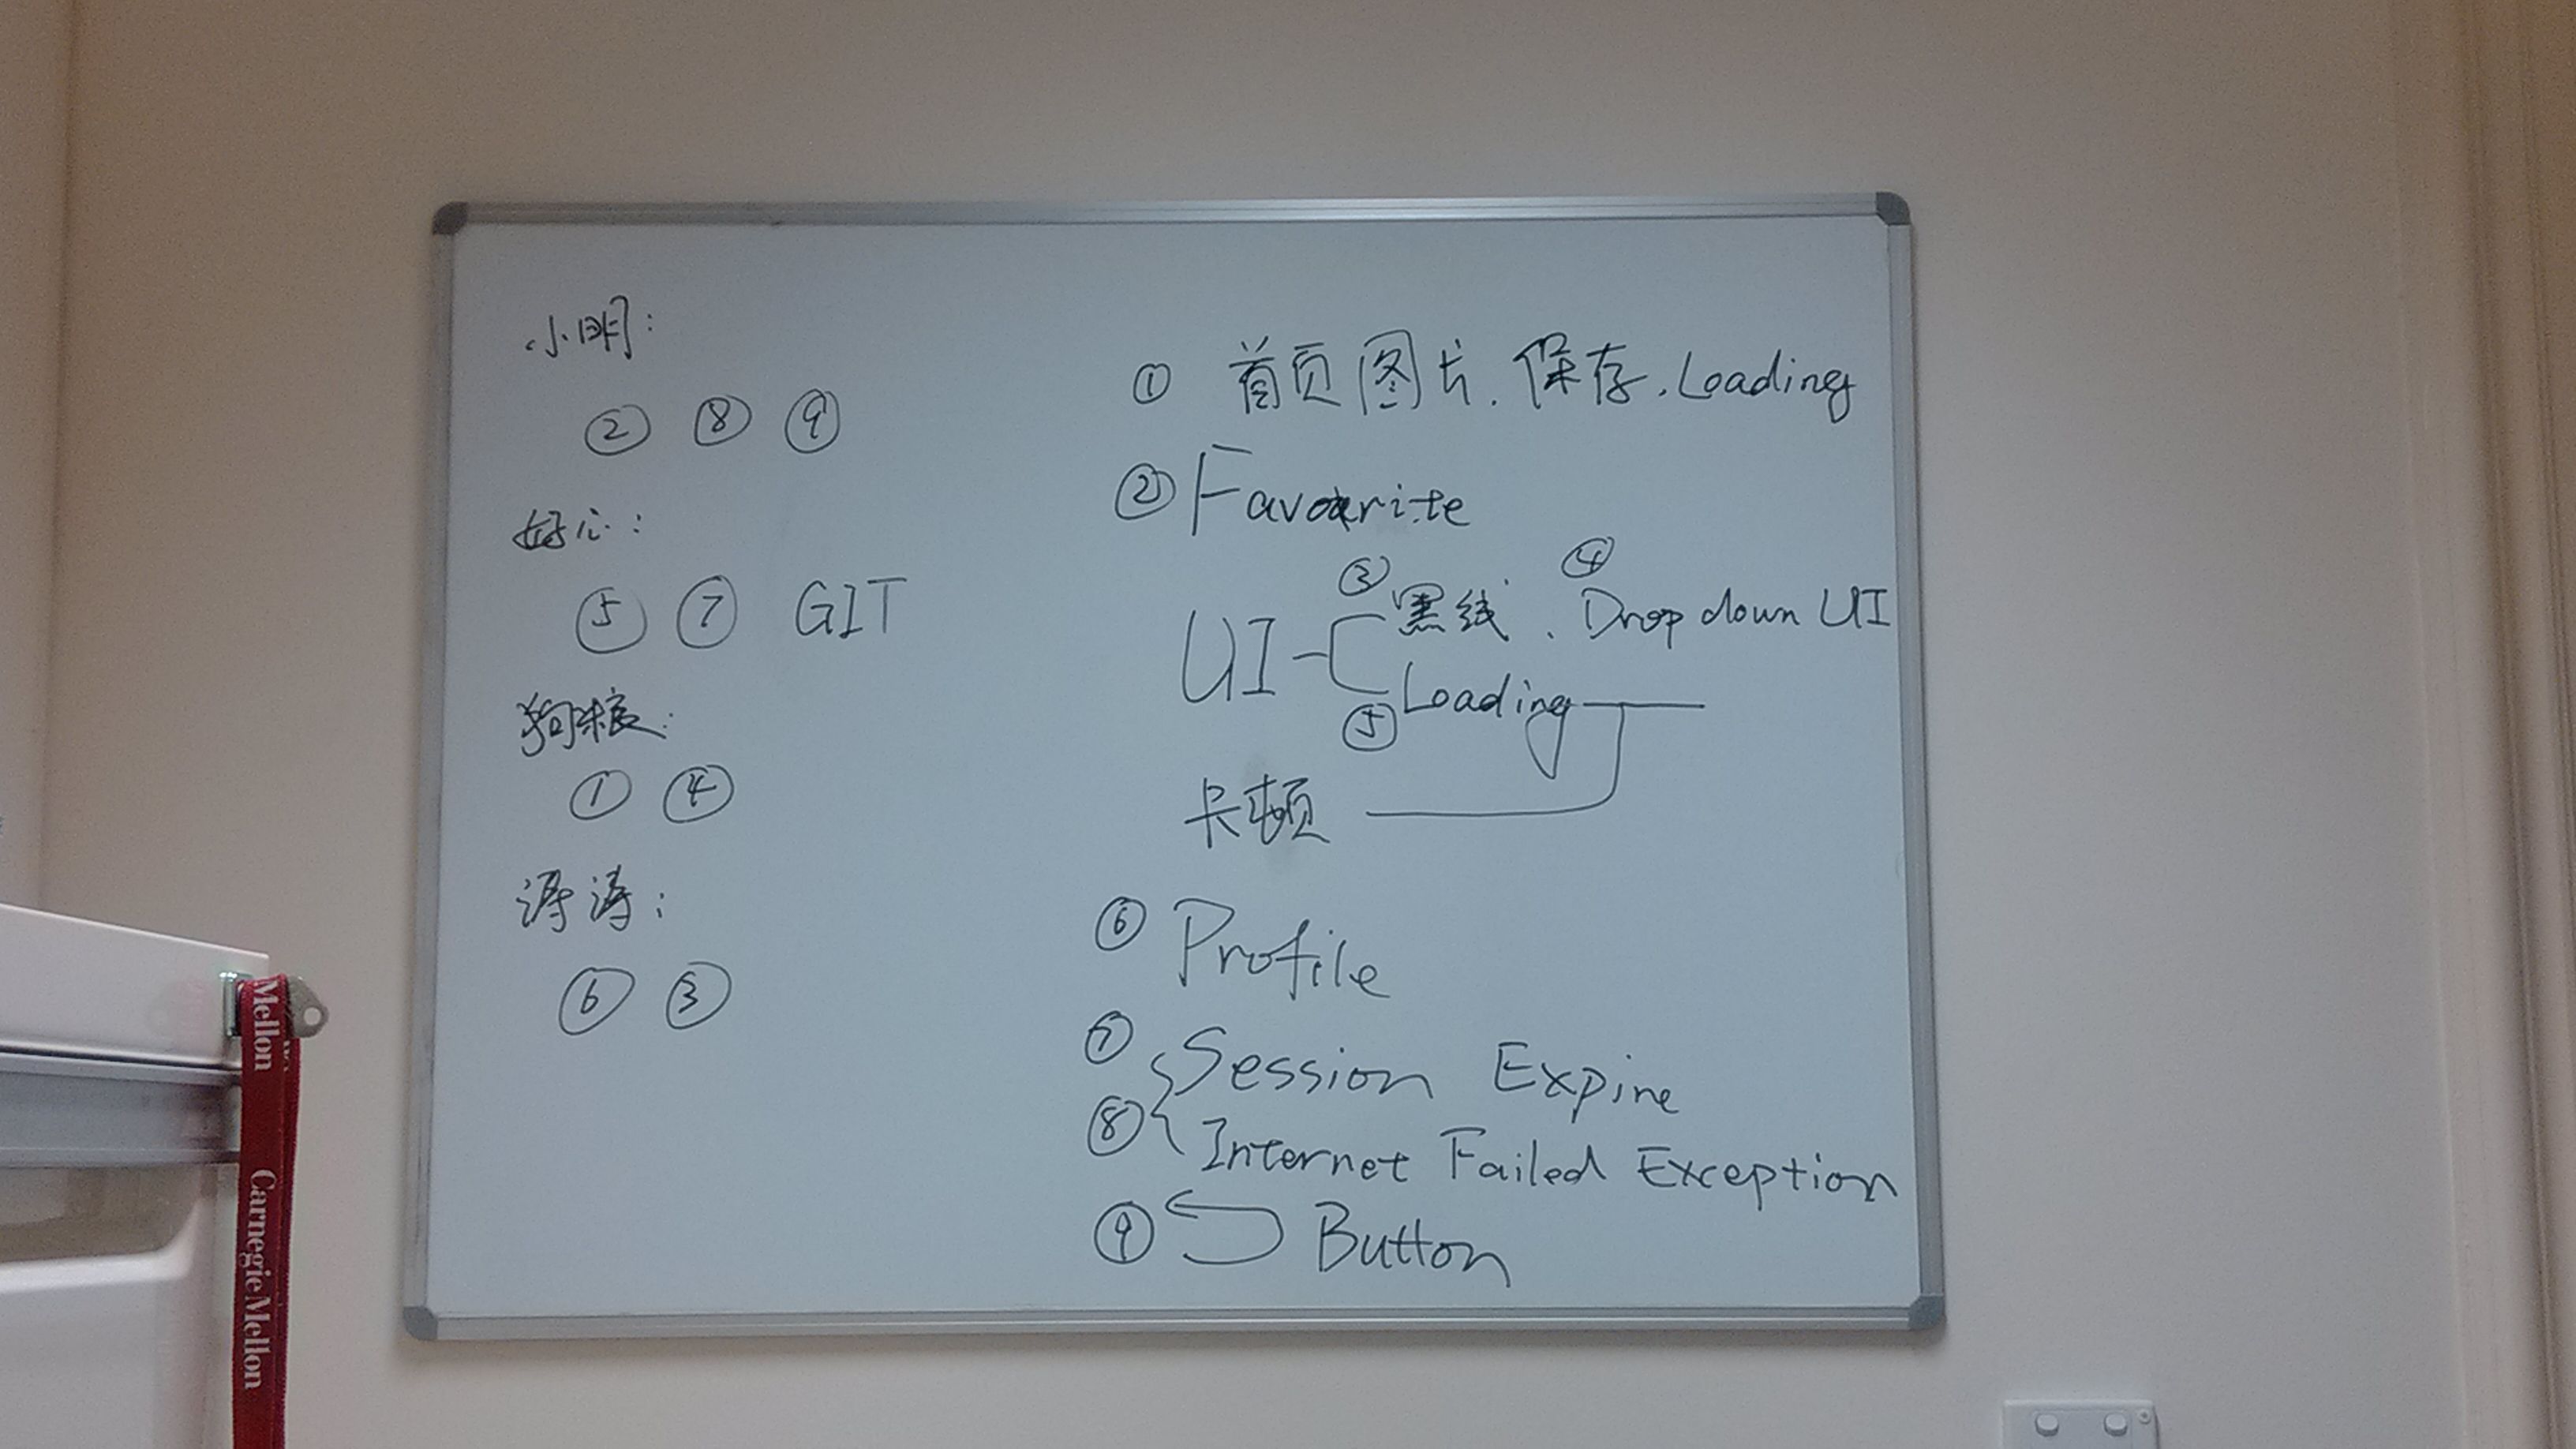 小明：
② ⑧ ⑨
好心：
⑤ ⑦ GIT
狗粮：
① ④
涛涛：
⑥ ③
① 首页图片、保存、Loading
② Favourite
③ ④
UI 黑线、Drop down UI
⑤ Loading
卡顿
⑥ Profile
⑦ Session Expire
⑧ Internet Failed Exception
⑨ Button
Mellon
CarnegieMellon